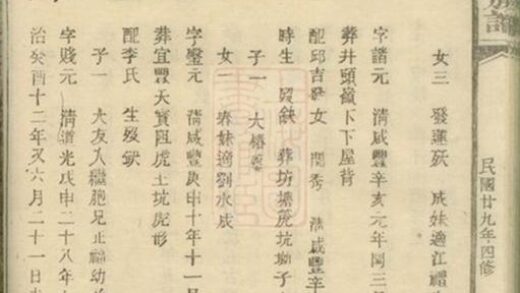 民國廿九年四修
女三 發蓮殀 成妹適江禮
字諧元 清咸豐辛亥元年閏三
葬井頭嶺下下屋背
配邱吉發女 閏秀 清咸豐辛
時生 歿缺 葬坊塘虎坑獅子
子一 大椿
女一 春妹適劉水成
字鑒元 清咸豐庚申十年十一
葬宜豐天寶阻虎土坑虎形
配李氏 生歿缺
子一 大友入繼胞兄正福幼
字賤元 清道光戊申二十八年
治癸酉十二年又六月二十一日